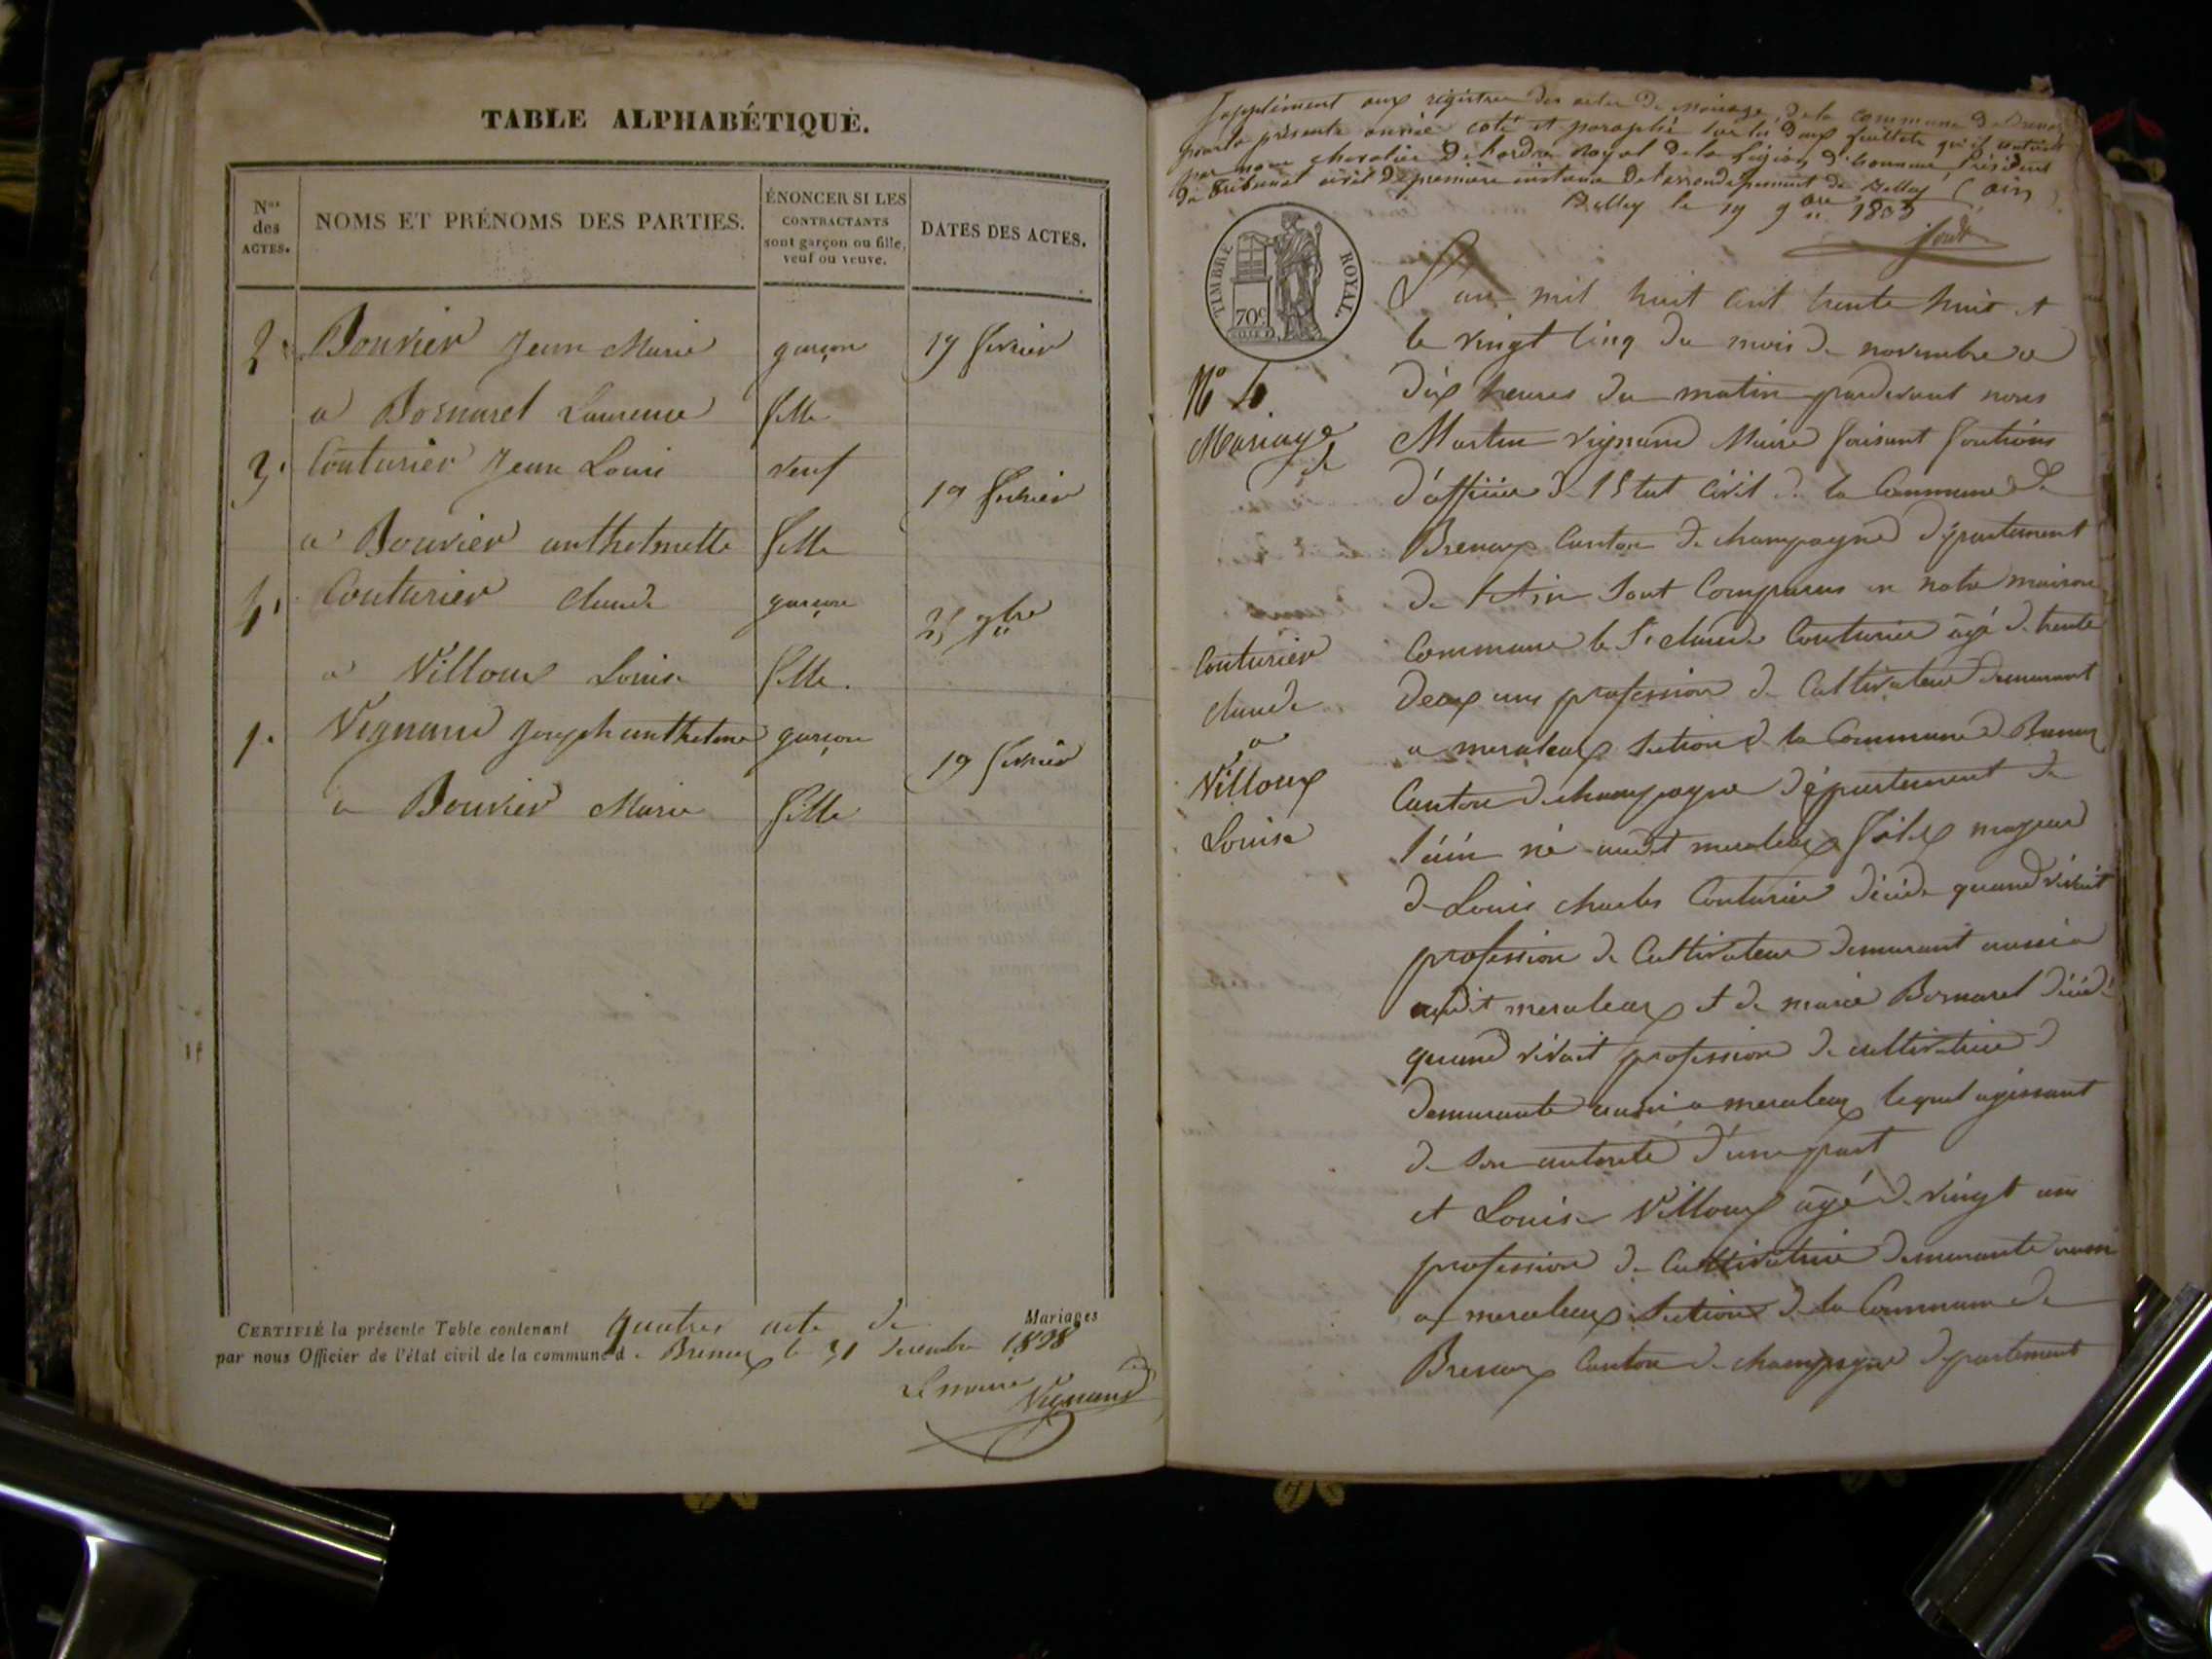 TABLE ALPHABÉTIQUE.
Nos des ACTES.
NOMS ET PRÉNOMS DES PARTIES.
ÉNONCER SI LES CONTRACTANTS sont garçon ou fille, veuf ou veuve.
DATES DES ACTES.
2. Bouvier Jean Marie garçon 19 fevrier
a Bornarel Laurence fille
3. Couturier Jean Louis veuf 19 fevrier
a Bouvier anthelmette fille
4. Couturier claude garçon 25 9bre
a Villoux Louise fille.
1. Vignand Joseph anthelme garçon 19 fevrier
a Bouvier Marie fille
CERTIFIÉ la présente Table contenant quatres acte de Mariages
par nous Officier de l'état civil de la commune d. Brenaz le 31 decembre 1838
Le maire Vignand
Supplément aux régistres des actes de mariage de la commune de Brenaz
pour la présente année coté et paraphé sur les deux feuillets qu'il contient
par nous chevalier de l'ordre Royal de la Légion d'honneur, Président
du Tribunal civil de première instance de l'arrondissement de Belley (Ain)
Belley le 19 9bre
TIMBRE ROYAL.
70c
No 4.
Mariage
de
Couturier
claude
a
Villoux
Louise
L'an mil huit cent trente huit et
le vingt cinq du mois de novembre a
dix heures du matin pardevant nous
Martin Vignand Maire faisant fontions
d'officier de l'Etat civil de la Commune de
Brenaz Canton de champagne département
de l'Ain Sont Comparus en notre maison
Commune le Sr claude Couturier âgé de trente
deux ans profession de Cultivateur demurant
a meraleaz Section de la Commune de Brenaz
Canton de champagne département de
l'ain né audit meraleaz fils majeur
de Louis charles Couturier décédé quand vivait
profession de Cultivateur demurant aussi a
audit meraleaz et de marie Bornarel décédé
quand vivait profession de cultivatrice
demurante aussi a meraleaz lequel agissant
de son autorité d'une part
et Louise Villoux âgé de vingt ans
profession de Cultivatrice demurante aussi
a meraleaz Section de la Commune de
Brenaz Canton de champagne département